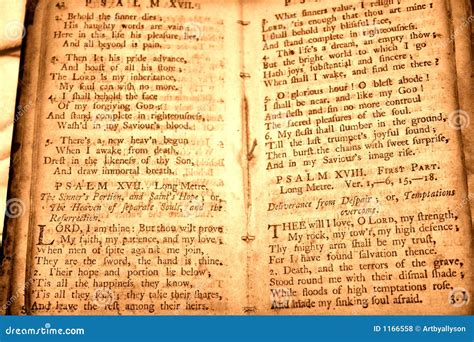 42 PSALM XVII.
2. Behold the sinner dies;
His haughty words are vain;
Here in this life his pleasure lies,
And all beyond is pain.
3. Then let his pride advance,
And boast of all his store:
The LORD is my inheritance,
My soul can wish no more.
4. I shall behold the face
Of my forgiving GOD;
And stand complete in righteousness,
Wash'd in my Saviour's blood.
5. There's a new heav'n begun
When I awake from death,
Drest in the likeness of thy Son,
And draw immortal breath.
PSALM XVII. Long Metre.
The Sinner's Portion, and Saint's Hope; or,
The Heaven of separate Souls, and the
Resurrection.
LORD, I am thine: But thou wilt prove
My faith, my patience, and my love:
When men of spite against me join,
They are the sword, the hand is thine.
2. Their hope and portion lie below;
'Tis all the happiness, they know,
'Tis all they seek; they take their shares,
And leave the rest among their heirs.
PSALM XVII.
What sinners value, I resign;
LORD, 'tis enough that thou art mine:
I shall behold thy blissful face,
And stand complete in righteousness.
4. This life's a dream, an empty show:
But the bright world to which I go
Hath joys substantial and sincere:
When shall I wake, and find me there?
5. O glorious hour! O blest abode!
I shall be near, and like my GOD!
And flesh and sin no more controul
The sacred pleasures of the soul.
6. My flesh shall slumber in the ground,
Till the last trumpet's joyful sound;
Then burst the chains with sweet surprise,
And in my Saviour's image rise.
PSALM XVIII. FIRST PART.
Long Metre. Ver. 1,—6, 15,—18.
Deliverance from Despair; or, Temptations
overcome.
THEE will I love, O LORD, my strength,
My rock, my tow'r, my high defence;
Thy mighty arm shall be my trust,
For I have found salvation thence.
2. Death, and the terrors of the grave,
Stood round me with their dismal shade;
While floods of high temptations rose,
And made my sinking soul afraid.
dreamstime
ID 1166558 © Artbyallyson